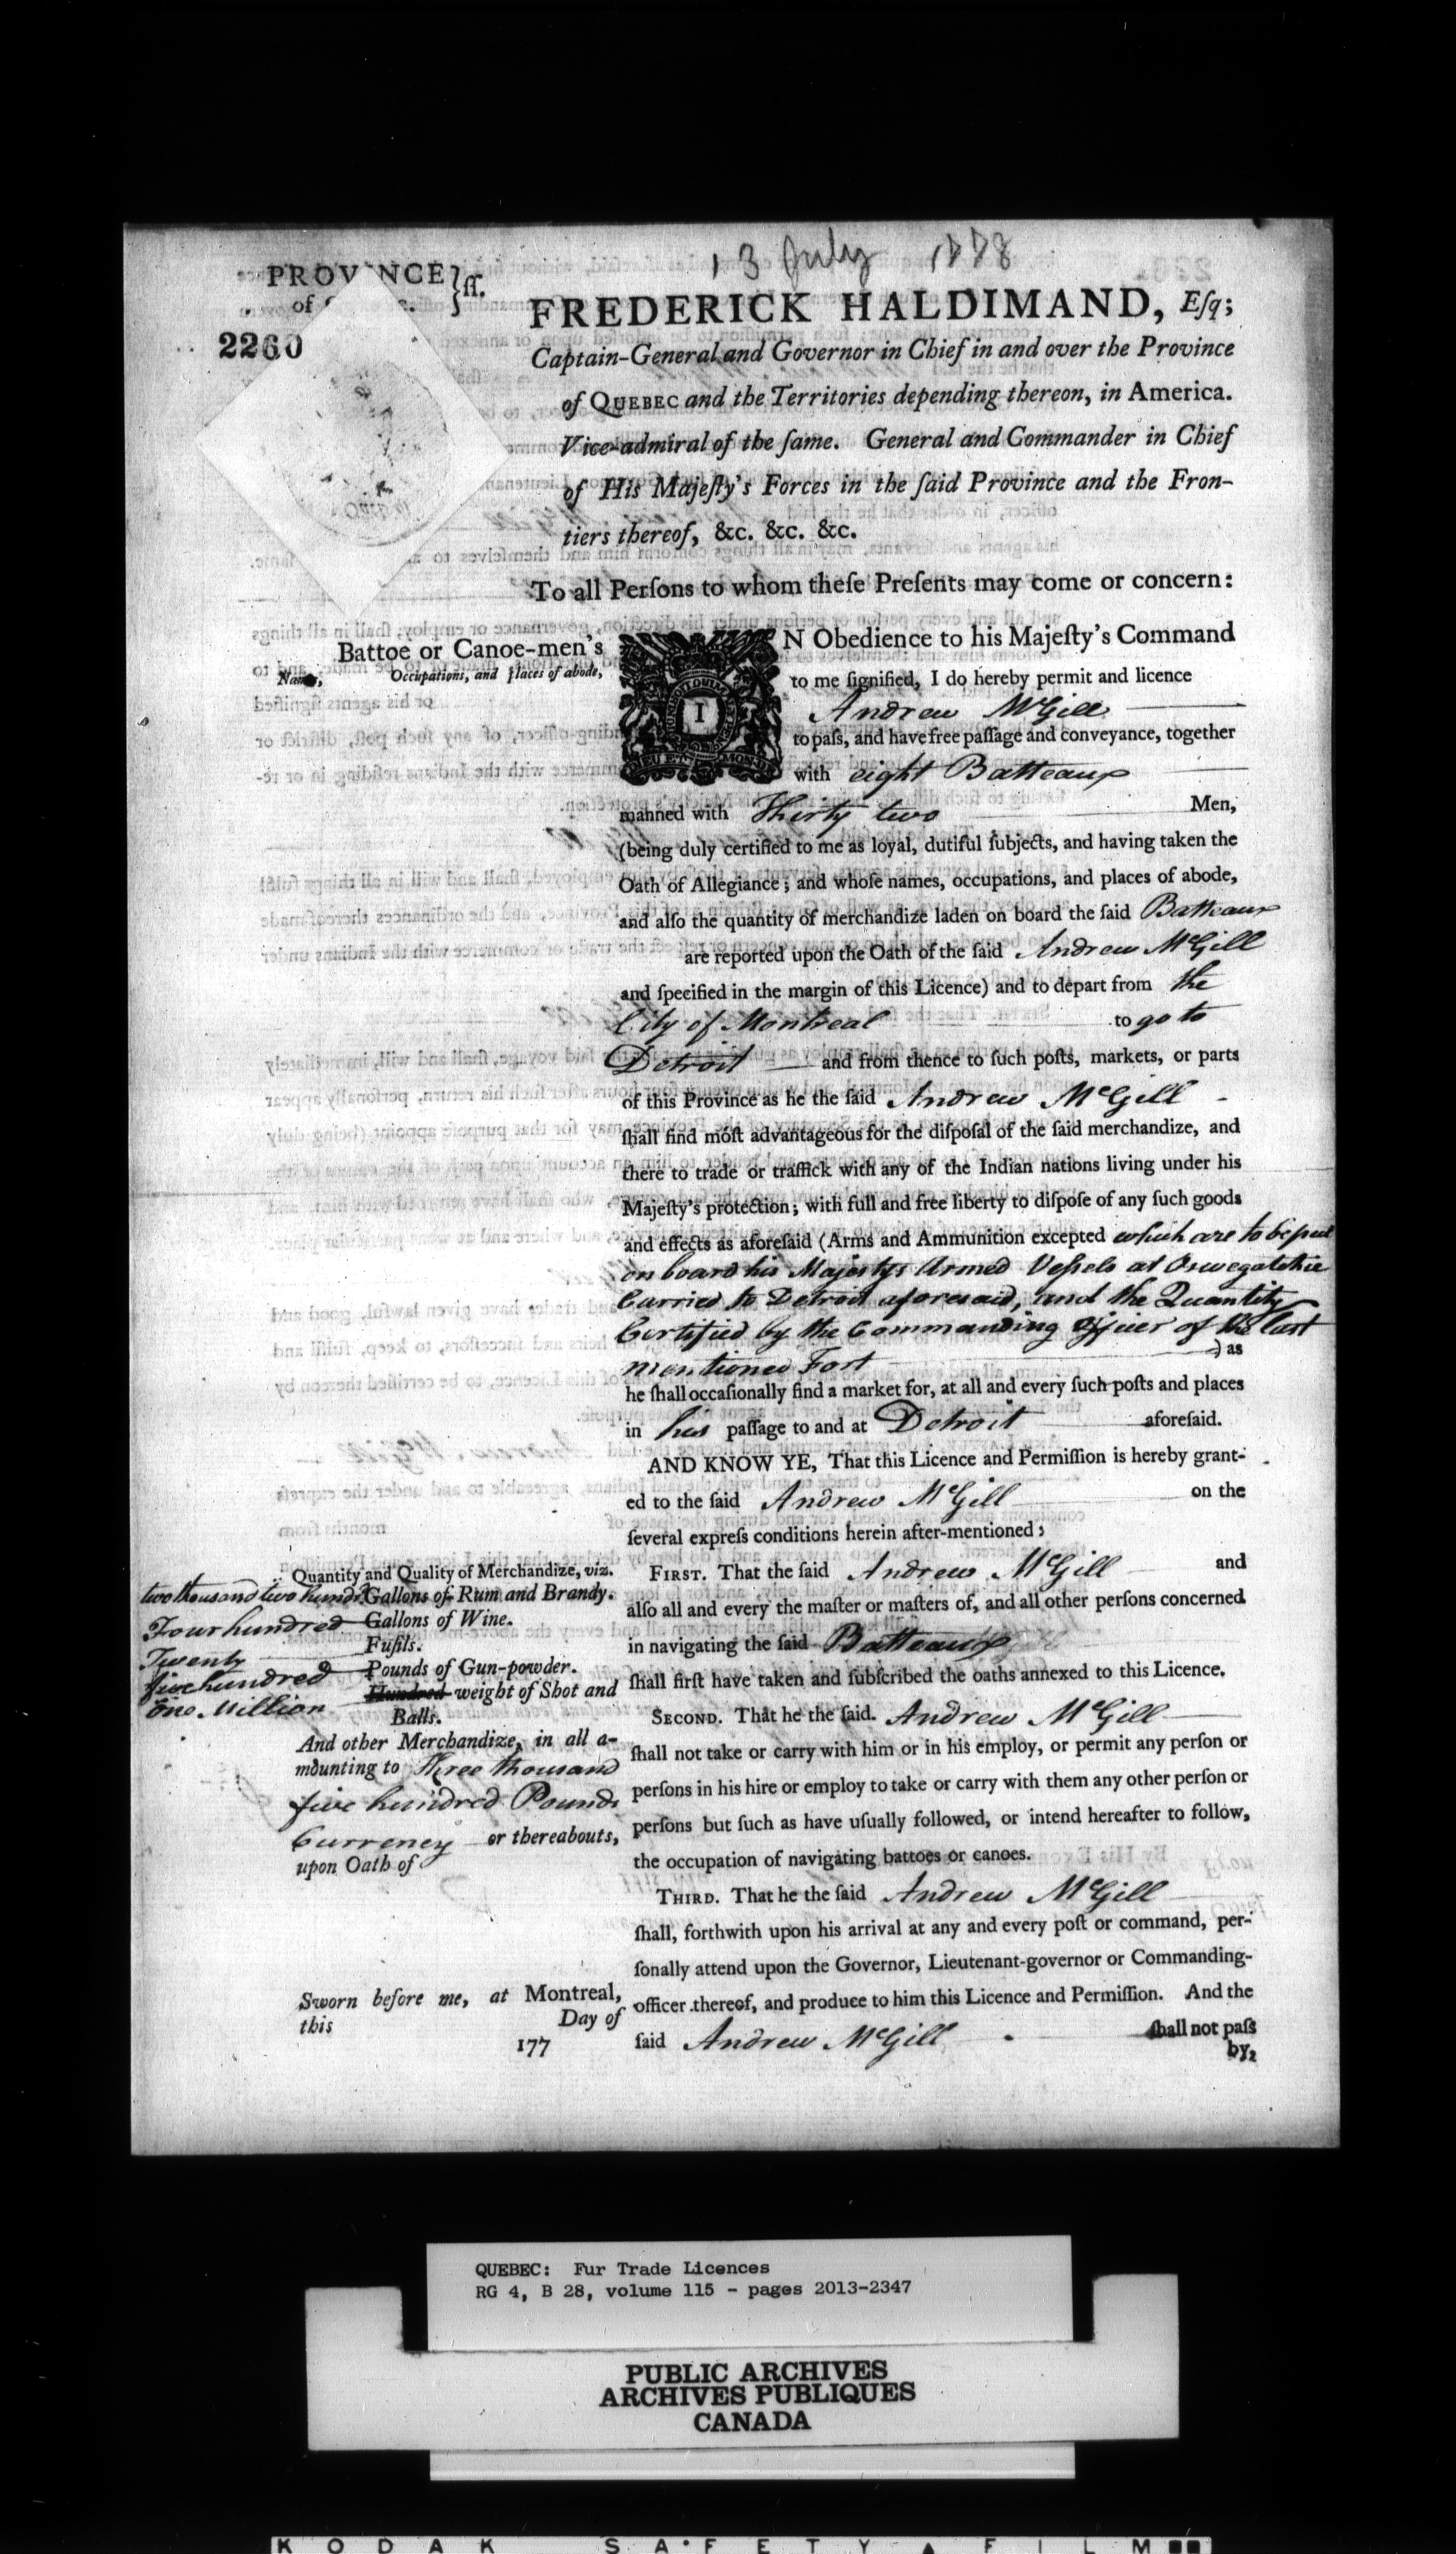 13 July 1778
PROVINCE } ſſ.
of
2260
FREDERICK HALDIMAND, Eſq;
Captain-General and Governor in Chief in and over the Province
of QUEBEC and the Territories depending thereon, in America.
Vice-admiral of the ſame. General and Commander in Chief
of His Majeſty's Forces in the ſaid Province and the Fron-
tiers thereof, &c. &c. &c.
To all Perſons to whom theſe Preſents may come or concern:
Battoe or Canoe-men's
Names, Occupations, and places of abode,
IN Obedience to his Majeſty's Command
to me ſignified, I do hereby permit and licence
Andrew McGill
to paſs, and have free paſſage and conveyance, together
with eight Batteaux
manned with Thirty two Men,
(being duly certified to me as loyal, dutiful ſubjects, and having taken the
Oath of Allegiance; and whoſe names, occupations, and places of abode,
and alſo the quantity of merchandize laden on board the ſaid Batteaux
are reported upon the Oath of the ſaid Andrew McGill
and ſpecified in the margin of this Licence) and to depart from the
City of Montreal to go to
Detroit and from thence to ſuch poſts, markets, or parts
of this Province as he the ſaid Andrew McGill
ſhall find moſt advantageous for the diſpoſal of the ſaid merchandize, and
there to trade or traffick with any of the Indian nations living under his
Majeſty's protection; with full and free liberty to diſpoſe of any ſuch goods
and effects as aforeſaid (Arms and Ammunition excepted which are to be put
on board his Majestys Armed Veſsels at Oswegatchie
Carried to Detroit aforesaid, and the Quantity
Certified by the Commanding Officer of the last
mentioned Fort ) as
he ſhall occaſionally find a market for, at all and every ſuch poſts and places
in his paſſage to and at Detroit aforeſaid.
AND KNOW YE, That this Licence and Permiſſion is hereby grant-
ed to the ſaid Andrew McGill on the
ſeveral expreſs conditions herein after-mentioned;
FIRST. That the ſaid Andrew McGill and
alſo all and every the maſter or maſters of, and all other perſons concerned
in navigating the ſaid Batteaux
ſhall firſt have taken and ſubſcribed the oaths annexed to this Licence.
SECOND. That he the ſaid. Andrew McGill
ſhall not take or carry with him or in his employ, or permit any perſon or
perſons in his hire or employ to take or carry with them any other perſon or
perſons but ſuch as have uſually followed, or intend hereafter to follow,
the occupation of navigating battoes or canoes.
THIRD. That he the ſaid Andrew McGill
ſhall, forthwith upon his arrival at any and every poſt or command, per-
ſonally attend upon the Governor, Lieutenant-governor or Commanding-
officer thereof, and produce to him this Licence and Permiſſion. And the
ſaid Andrew McGill ſhall not paſs
by,
Quantity and Quality of Merchandize, viz.
two thousand two hundd. Gallons of Rum and Brandy.
Four hundred Gallons of Wine.
Twenty Fuſils.
five hundred Pounds of Gun-powder.
One Million Hundred weight of Shot and
Balls.
And other Merchandize, in all a-
mounting to Three thousand
five hundred Pounds
Currency or thereabouts,
upon Oath of
Sworn before me, at Montreal,
this Day of
177
QUEBEC: Fur Trade Licences
RG 4, B 28, volume 115 - pages 2013-2347
PUBLIC ARCHIVES
ARCHIVES PUBLIQUES
CANADA
KODAK SAFETY FILM